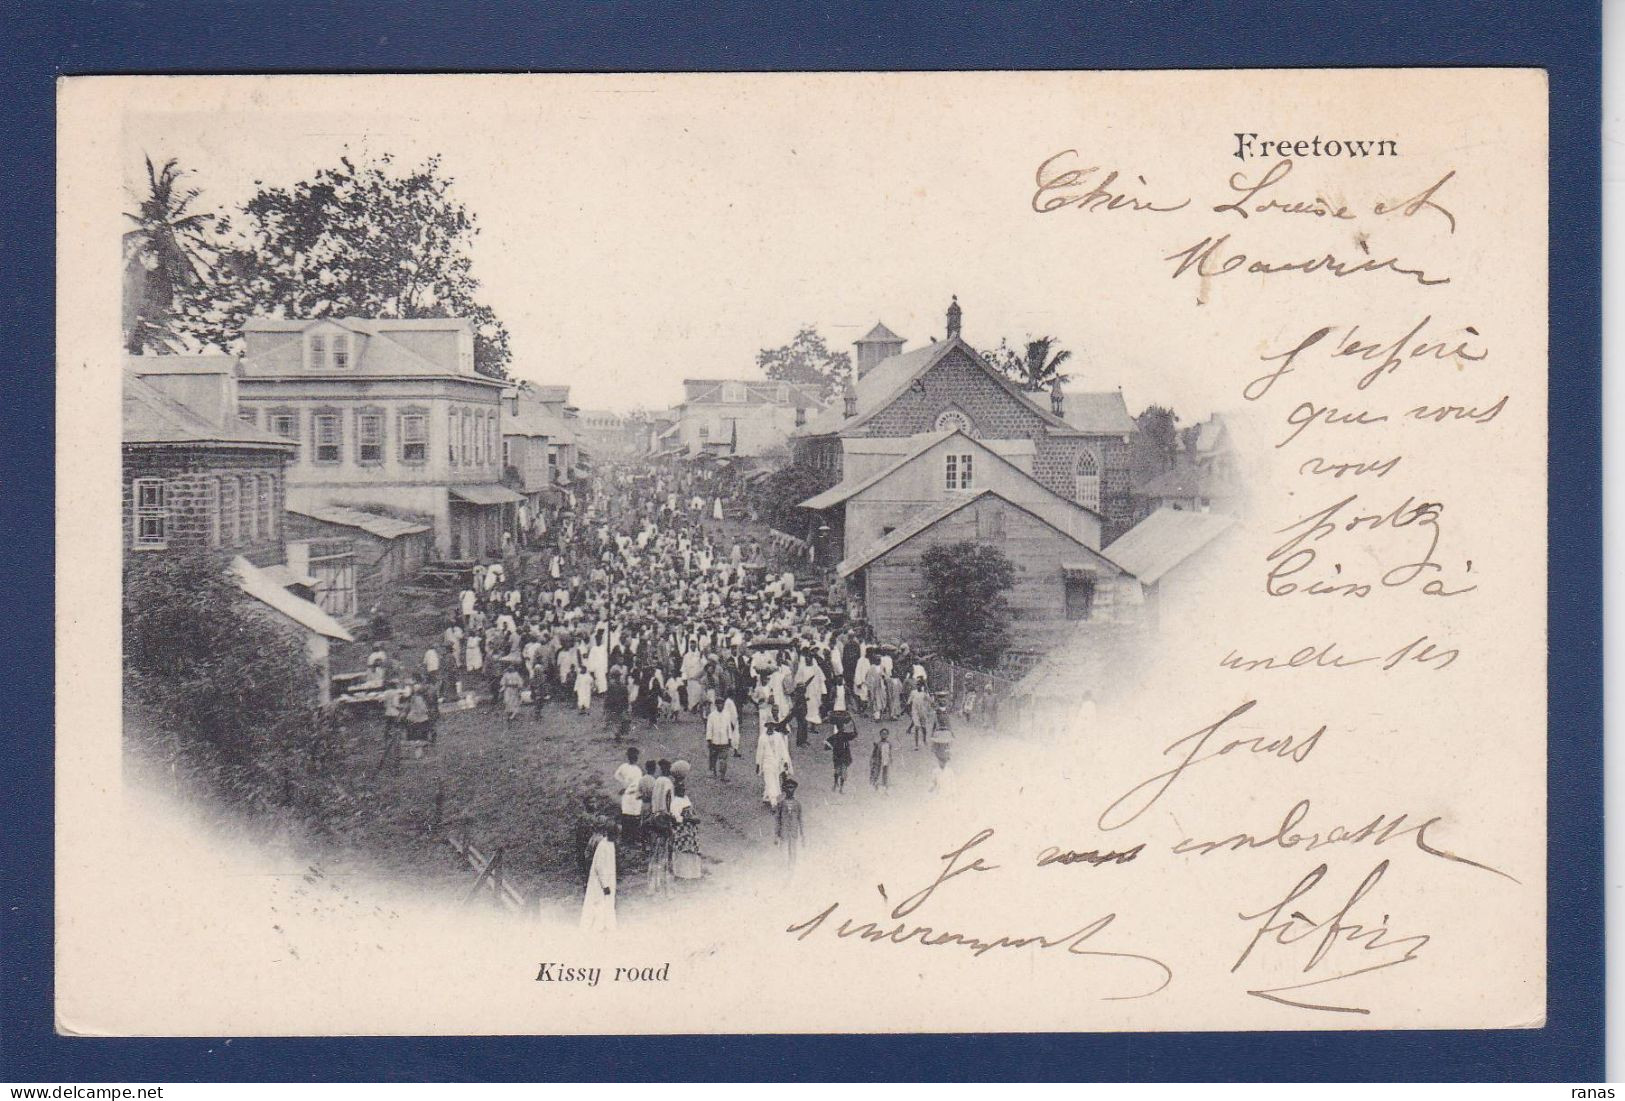 Freetown
Chère Louise et
Maurice
J'espère
que vous
vous
portez
bien à
un de ses
Jours
Je vous embrasse
sincerement Fifin
Kissy road
www.delcampe.net
ranas